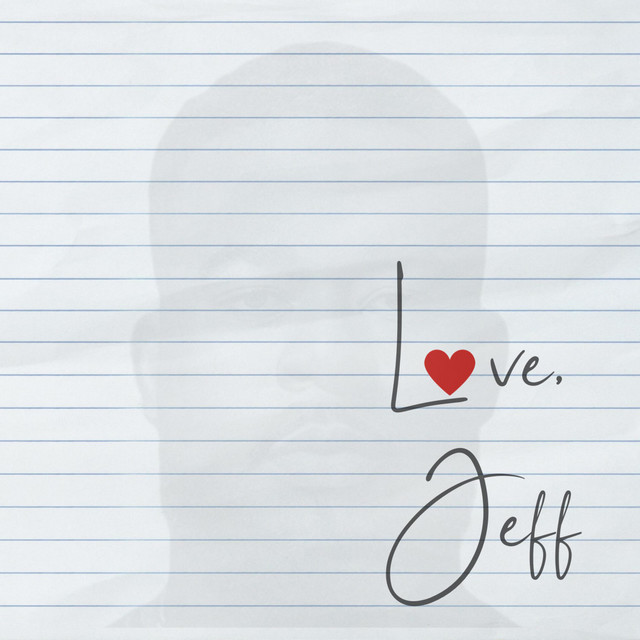 L❤ve,
Jeff